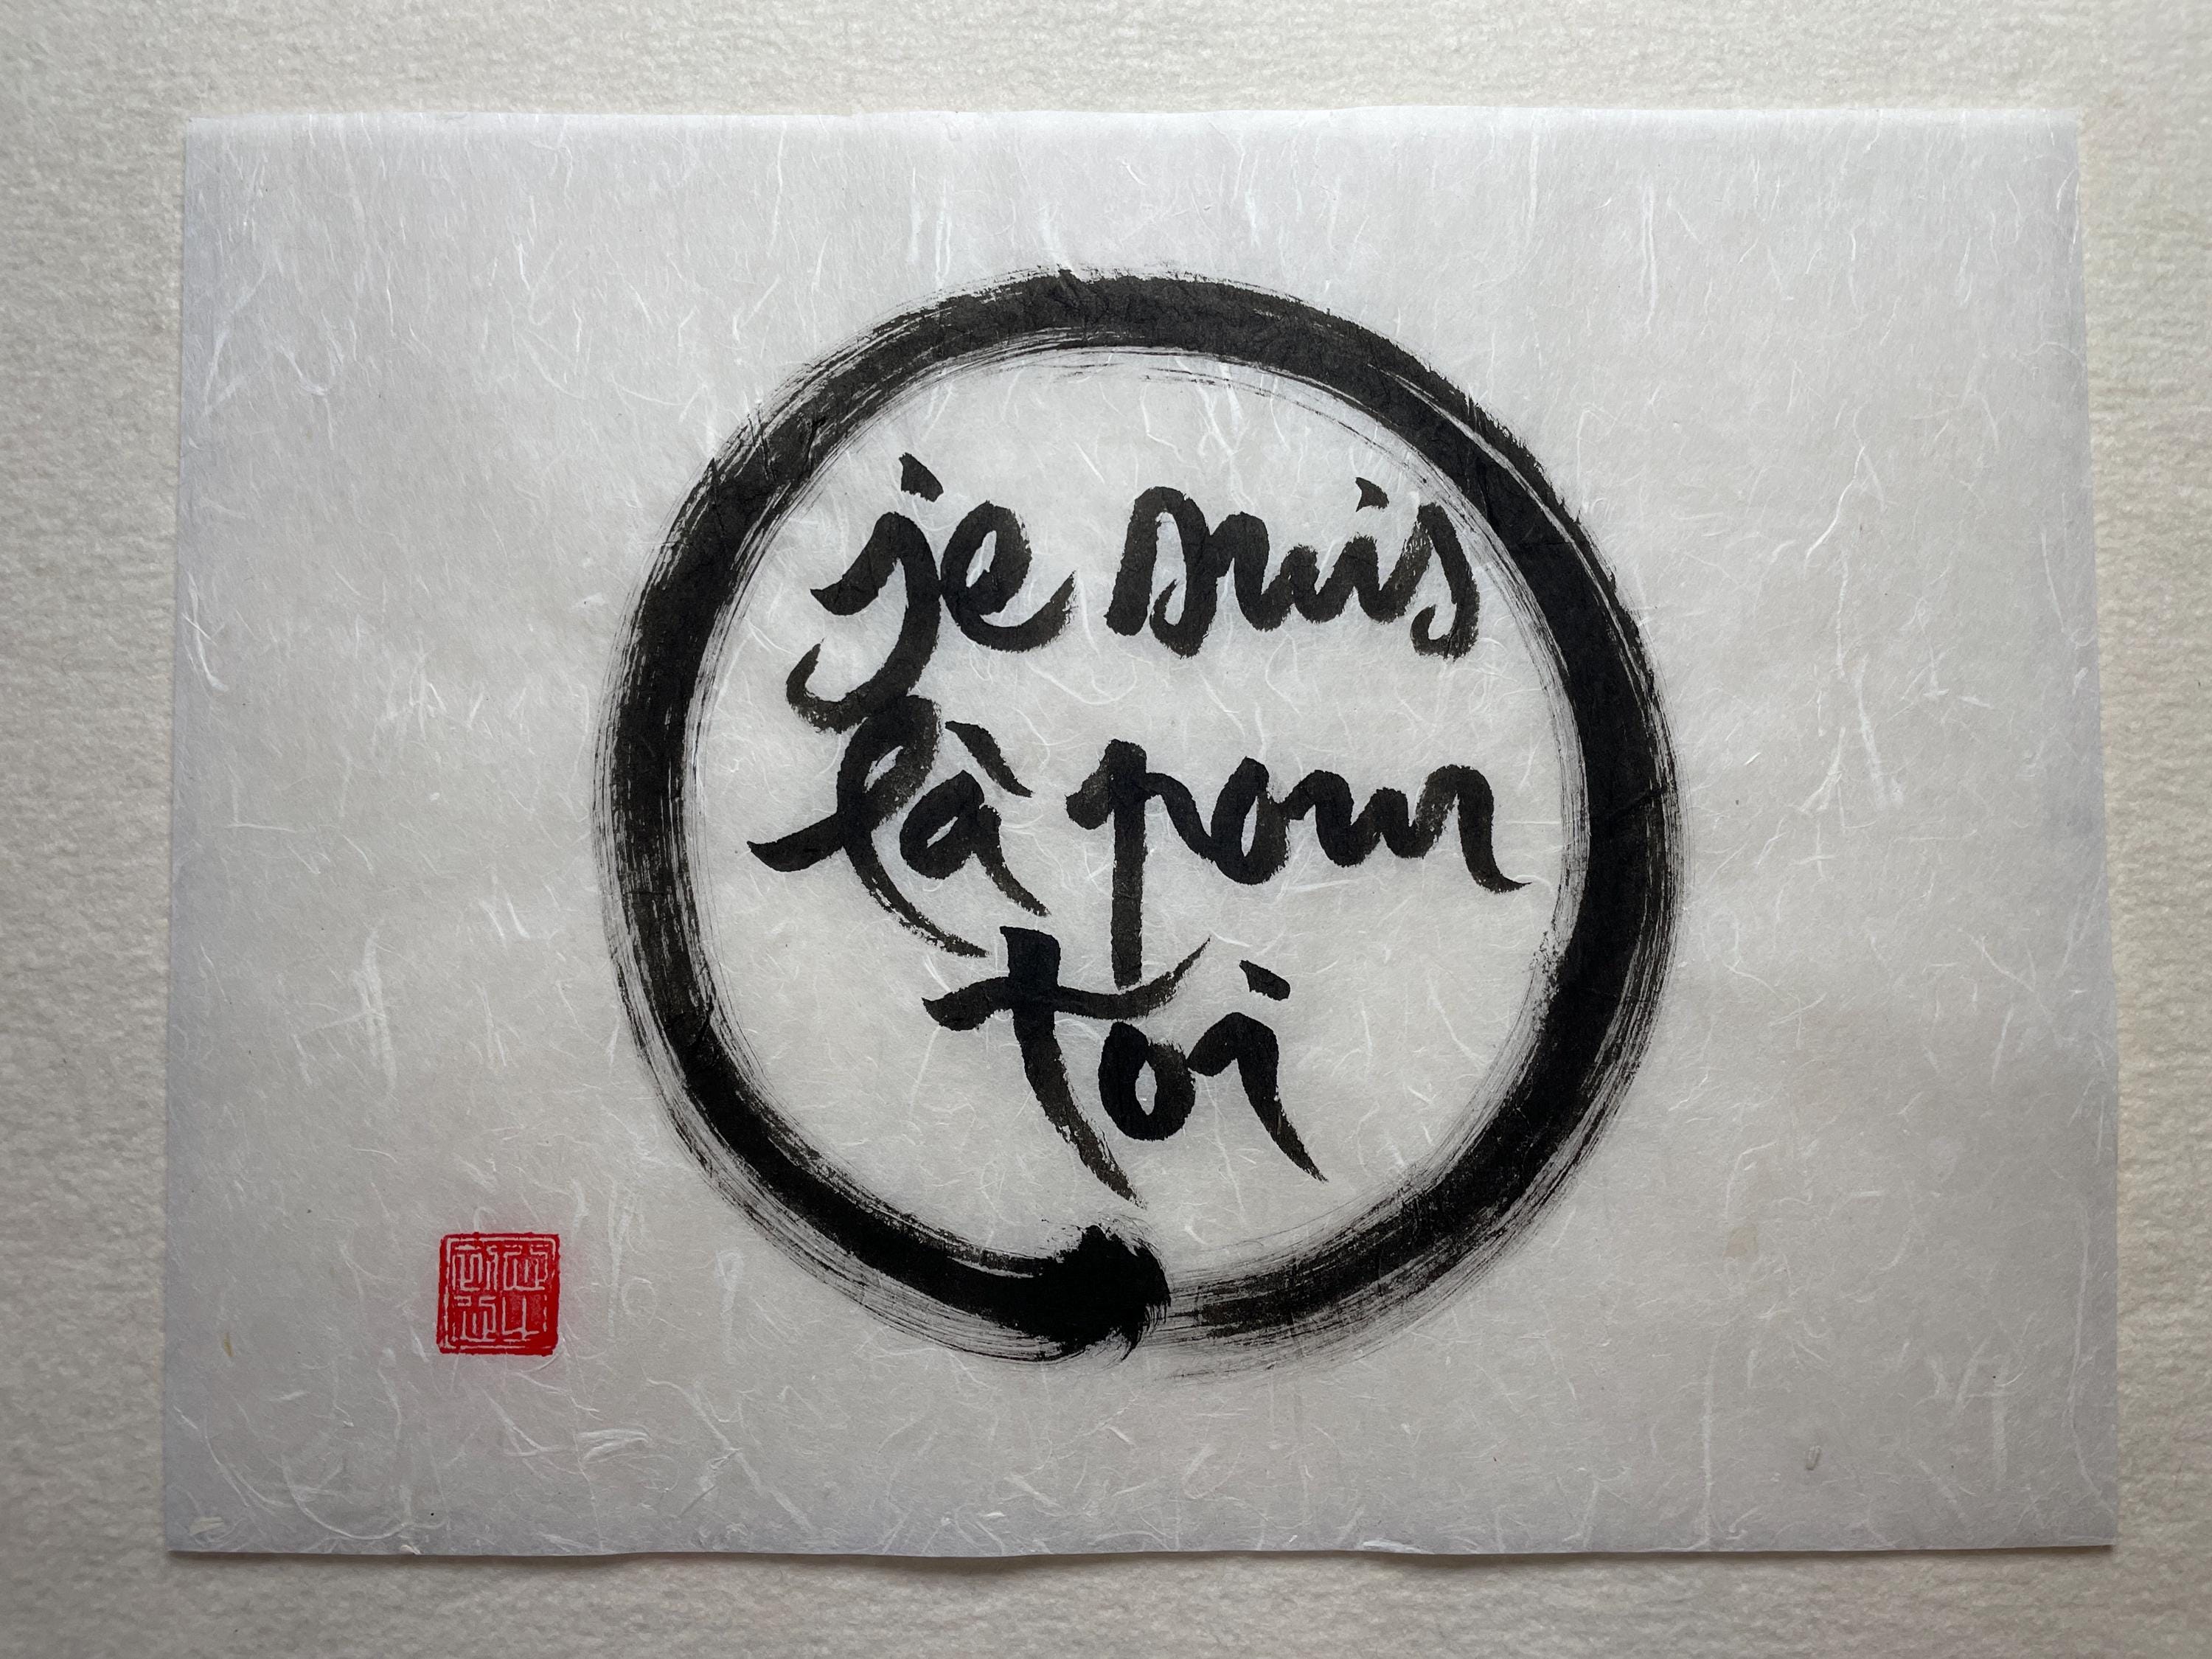 je suis
là pour
toi